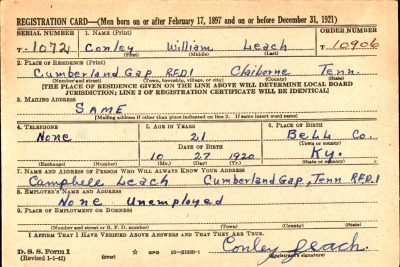 REGISTRATION CARD—(Men born on or after February 17, 1897 and on or before December 31, 1921)
SERIAL NUMBER 1. NAME (Print) ORDER NUMBER
T 1072 Conley William Leach T 10906
(First) (Middle) (Last)
2. PLACE OF RESIDENCE (Print)
Cumberland Gap RFD.1 Claiborne Tenn.
(Number and street) (Town, township, village, or city) (County) (State)
[THE PLACE OF RESIDENCE GIVEN ON THE LINE ABOVE WILL DETERMINE LOCAL BOARD
JURISDICTION; LINE 2 OF REGISTRATION CERTIFICATE WILL BE IDENTICAL]
3. MAILING ADDRESS
SAME
[Mailing address if other than place indicated on line 2. If same insert word same]
4. TELEPHONE 5. AGE IN YEARS 6. PLACE OF BIRTH
None 21 Bell Co.
DATE OF BIRTH (Town or county)
10 27 1920 Ky.
(Exchange) (Number) (Mo.) (Day) (Yr.) (State or country)
7. NAME AND ADDRESS OF PERSON WHO WILL ALWAYS KNOW YOUR ADDRESS
Campbell Leach Cumberland Gap, Tenn RFD.1
8. EMPLOYER'S NAME AND ADDRESS
None Unemployed
9. PLACE OF EMPLOYMENT OR BUSINESS
(Number and street or R. F. D. number) (Town) (County) (State)
I AFFIRM THAT I HAVE VERIFIED ABOVE ANSWERS AND THAT THEY ARE TRUE.
D. S. S. Form 1 GPO 16—21630-1 Conley Leach.
(Revised 1-1-42) (over) (Registrant's signature)